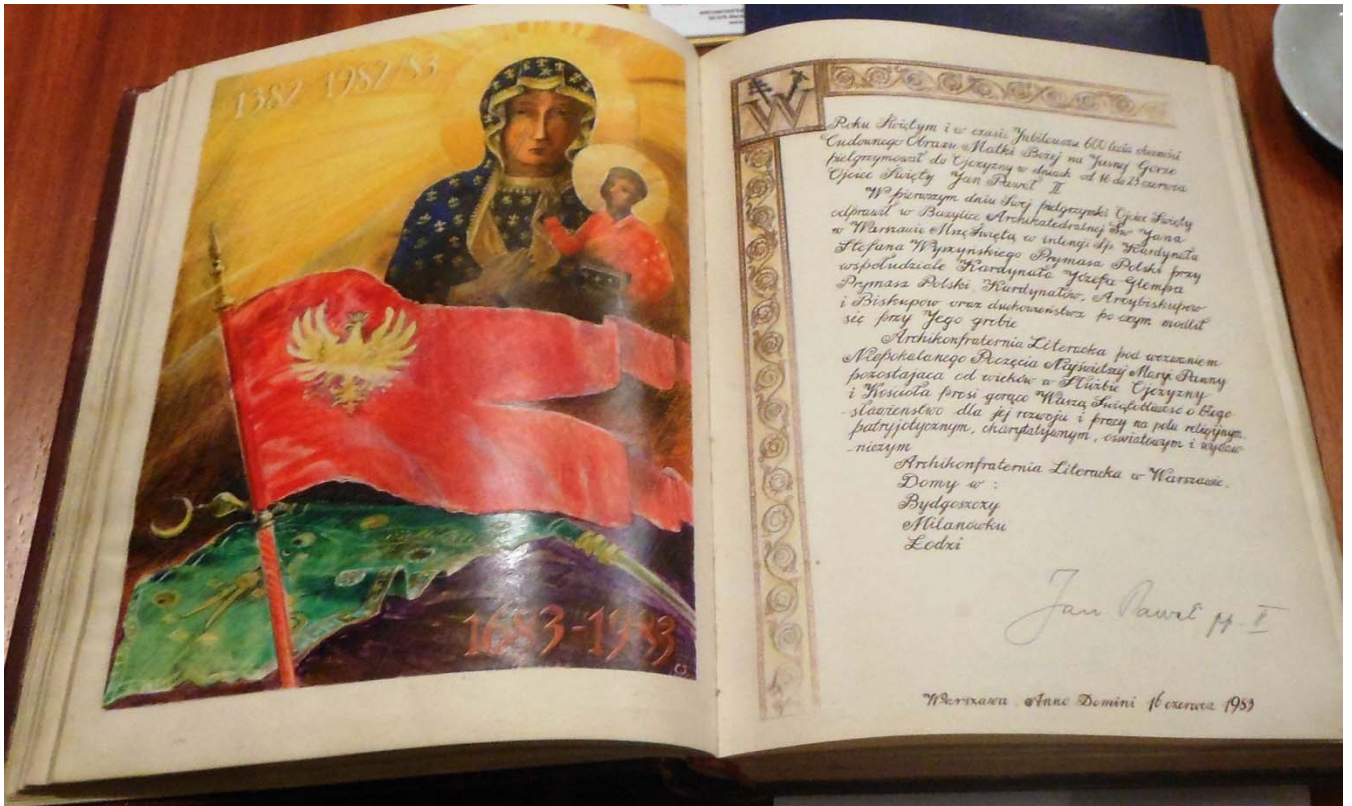 1382-1982/83
1683-1983
W
Roku Świętym i w czasie Jubileuszu 600 lecia obecności
Cudownego Obrazu Matki Bożej na Jasnej Górze
pielgrzymował do Ojczyzny w dniach od 16 do 23 czerwca
Ojciec Święty Jan Paweł II
W pierwszym dniu Swej pielgrzymki Ojciec Święty
odprawił w Bazylice Archikatedralnej Św Jana
w Warszawie Mszę Świętą w intencji śp. Kardynała
Stefana Wyszyńskiego Prymasa Polski przy
współudziale Kardynała Józefa Glempa
Prymasa Polski, Kardynałów, Arcybiskupów
i Biskupów oraz duchowieństwa po czym modlił
się przy Jego grobie
Archikonfraternia Literacka pod wezwaniem
Niepokalanego Poczęcia Najświętszej Maryi Panny
pozostająca od wieków w Służbie Ojczyzny
i Kościoła prosi gorąco Waszą Świątobliwość o błogo
-sławieństwo dla jej rozwoju i pracy na polu religijnym,
patryjotycznym, charytatywnym, oświatowym i wydaw
-niczym
Archikonfraternia Literacka w Warszawie.
Domy w :
Bydgoszczy
Milanówku
Łodzi
Jan Paweł pp. II
Warszawa Anno Domini 16 czerwca 1983